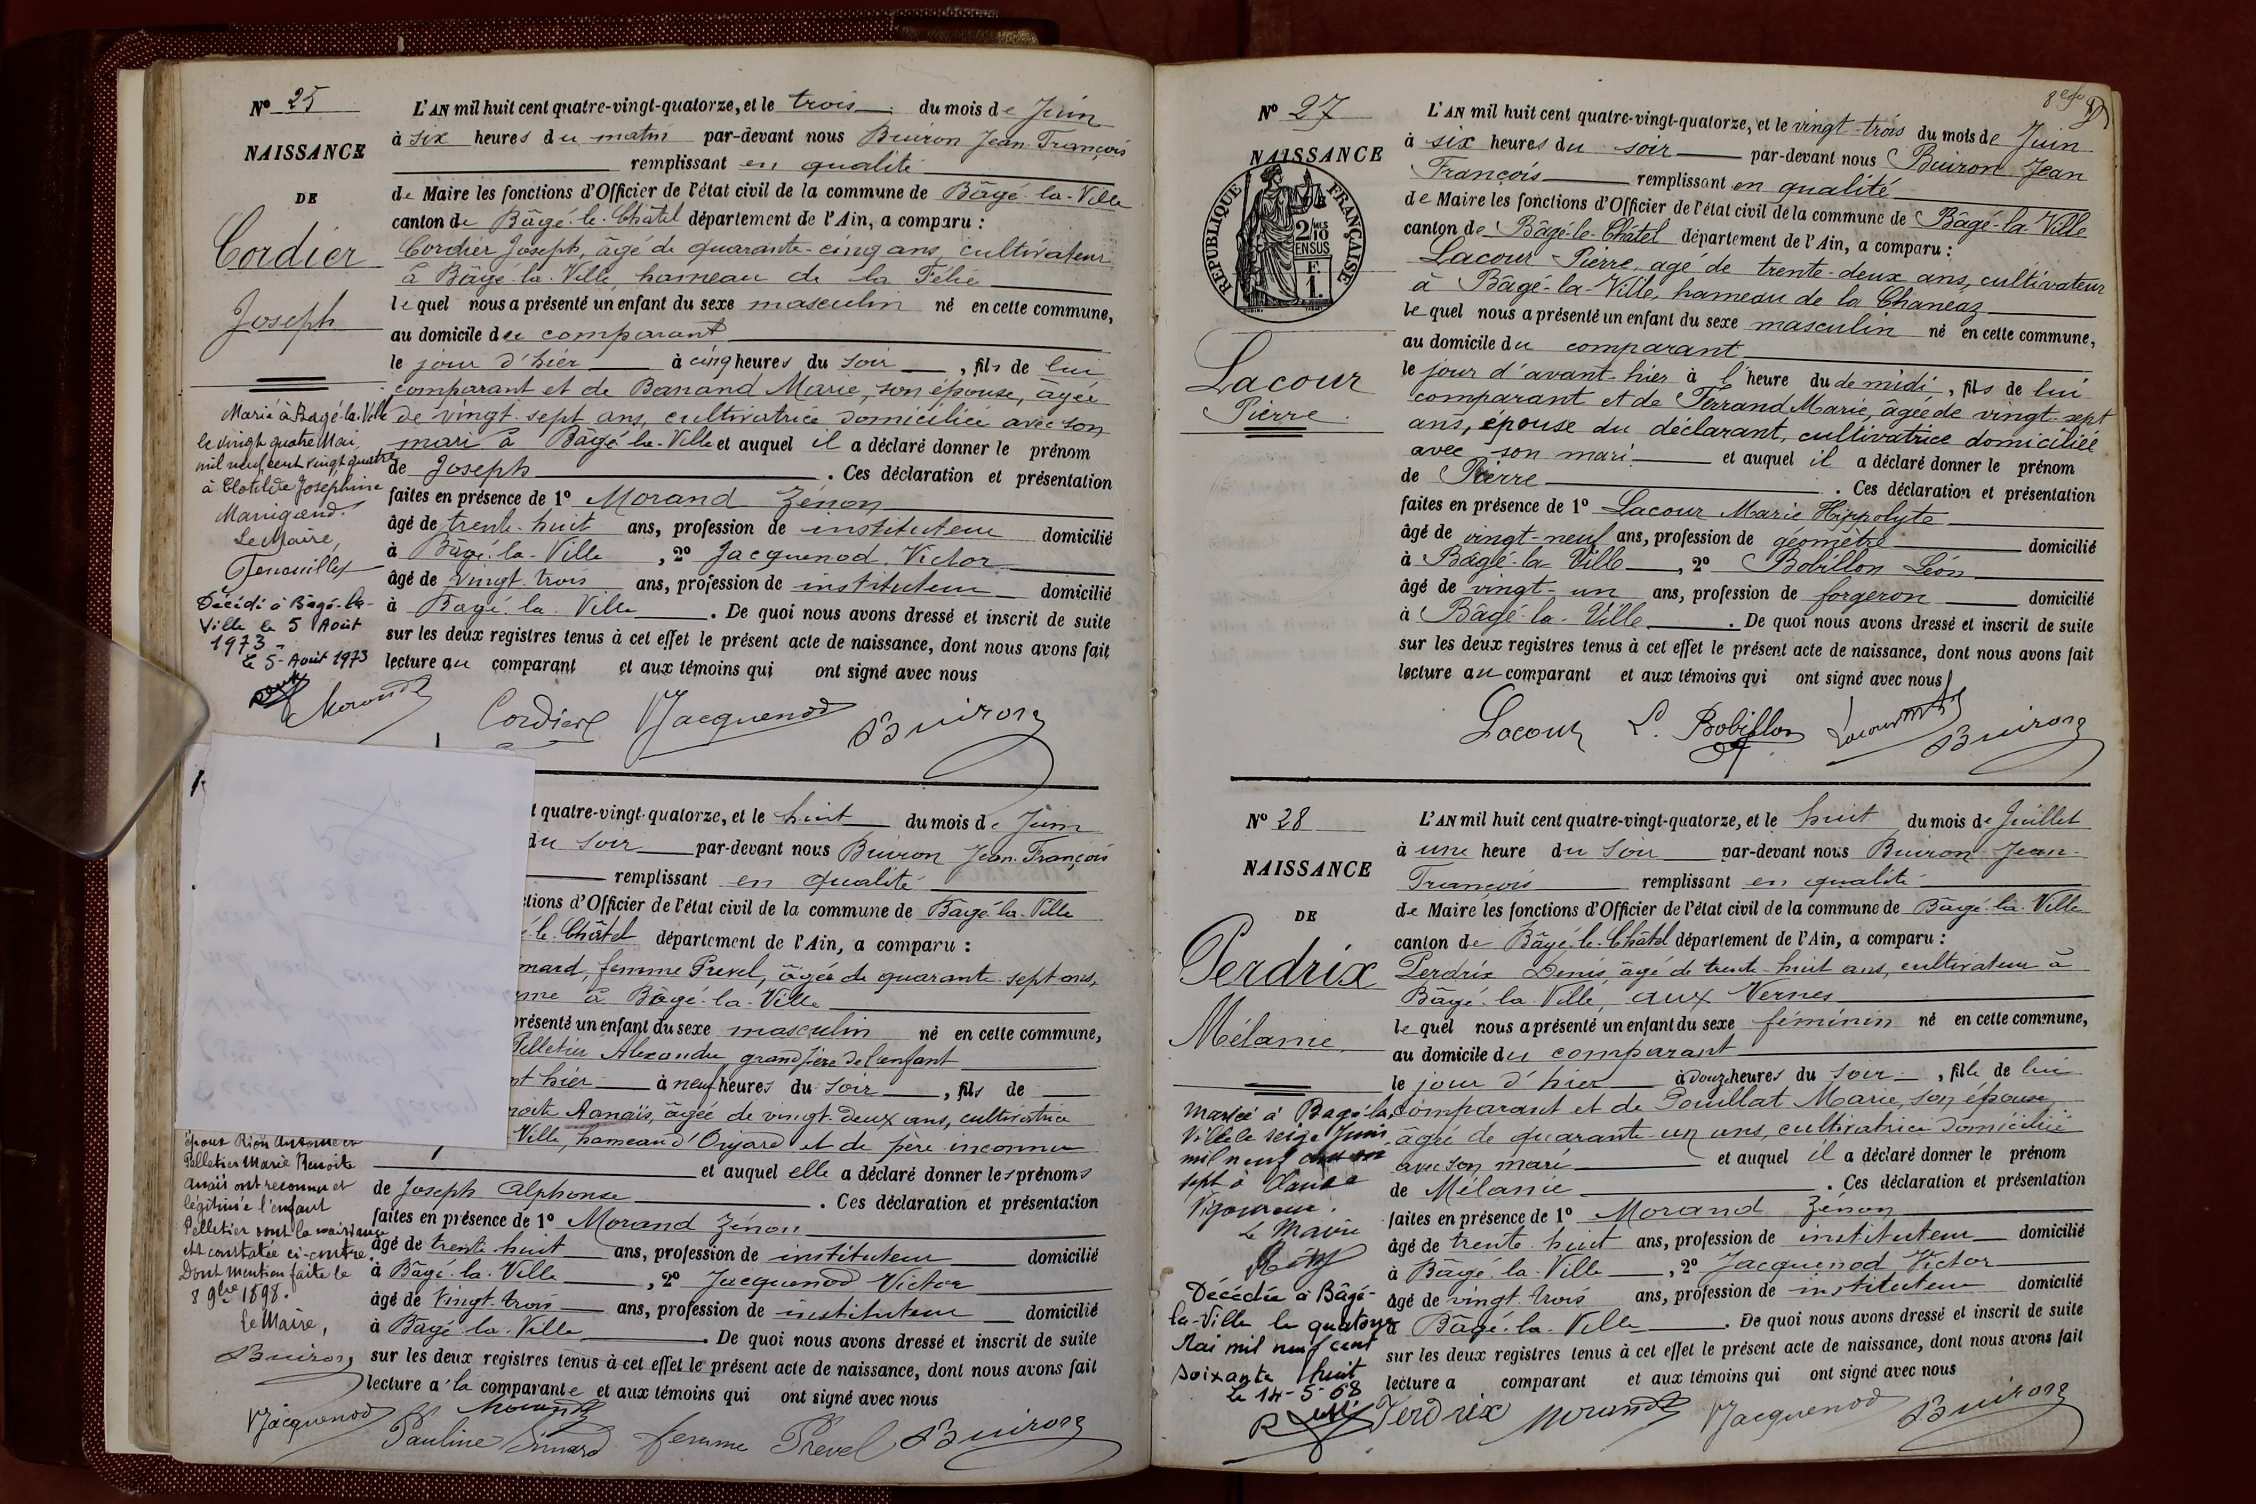 N° 25
NAISSANCE
DE
Cordier
Joseph
L'AN mil huit cent quatre-vingt-quatorze, et le trois du mois de Juin
à six heures du matin par-devant nous Buiron Jean-François
remplissant en qualité
de Maire les fonctions d'Officier de l'état civil de la commune de Bâgé-la-Ville
canton de Bâgé-le-Châtel département de l'Ain, a comparu :
Cordier Joseph, âgé de quarante-cinq ans, cultivateur
à Bâgé-la-Ville, hameau de la Félie
lequel nous a présenté un enfant du sexe masculin né en cette commune,
au domicile du comparant
le jour d'hier à cinq heures du soir, fils de lui
comparant et de Banand Marie, son épouse, âgée
de vingt-sept ans, cultivatrice domiciliée avec son
mari à Bâgé-la-Ville et auquel il a déclaré donner le prénom
de Joseph. Ces déclaration et présentation
faites en présence de 1° Morand Zénon
âgé de trente-huit ans, profession de instituteur domicilié
à Bâgé-la-Ville, 2° Jacquenod Victor
âgé de vingt-trois ans, profession de instituteur domicilié
à Bagé-la-Ville. De quoi nous avons dressé et inscrit de suite
sur les deux registres tenus à cet effet le présent acte de naissance, dont nous avons fait
lecture au comparant et aux témoins qui ont signé avec nous
Marié à Bagé-la-Ville
le vingt quatre Mai
mil neuf cent vingt quatre
à Clotilde Joséphine
Manigand.
Le Maire,
Fenouillet
Décédé à Bâgé-la-
Ville le 5 Août
1973
le 5-Août 1973
Morand Cordier VJacquenod Buiron
t quatre-vingt-quatorze, et le huit du mois de Juin
du soir par-devant nous Buiron Jean-François
remplissant en qualité
ctions d'Officier de l'état civil de la commune de Bâgé-la-Ville
é-le-Châtel département de l'Ain, a comparu :
mard, femme Prevel, âgée de quarante-sept ans,
me à Bâgé-la-Ville
présenté un enfant du sexe masculin né en cette commune,
Pelletier Alexandre grand père de l'enfant
nt hier à neuf heures du soir, fils de
noite Aanaïs, âgée de vingt-deux ans, cultivatrice
Ville, hameau d'Onjard et de père inconnu
et auquel elle a déclaré donner les prénoms
de Joseph Alphonse. Ces déclaration et présentation
faites en présence de 1° Morand Zénon
âgé de trente-huit ans, profession de instituteur domicilié
à Bâgé-la-Ville, 2° Jacquenod Victor
âgé de vingt-trois ans, profession de instituteur domicilié
à Bâgé-la-Ville. De quoi nous avons dressé et inscrit de suite
sur les deux registres tenus à cet effet le présent acte de naissance, dont nous avons fait
lecture a la comparante et aux témoins qui ont signé avec nous
époux Rion Antoine et
Pelletier Marie Benoite
Anaïs ont reconnu et
légitimé l'enfant
Pelletier dont la naissance
est constatée ci-contre.
Dont mention faite le
8 9bre 1898.
Le Maire,
Buiron
VJacquenod Morand
Pauline Simard femme Prevel Buiron
N° 27
NAISSANCE
RÉPUBLIQUE FRANÇAISE
2 MES
10
EN SUS
F.
1.
Lacour
Pierre
L'AN mil huit cent quatre-vingt-quatorze, et le vingt-trois du mois de Juin
à six heures du soir par-devant nous Buiron Jean
François remplissant en qualité
de Maire les fonctions d'Officier de l'état civil de la commune de Bâgé-la-Ville
canton de Bâgé-le-Châtel département de l'Ain, a comparu :
Lacour Pierre, agé de trente-deux ans, cultivateur
à Bâgé-la-Ville, hameau de la Chaneaz
lequel nous a présenté un enfant du sexe masculin né en cette commune,
au domicile du comparant
le jour d'avant-hier à l'heure du de midi, fils de lui
comparant et de Ferrand Marie, âgée de vingt-sept
ans, épouse du déclarant, cultivatrice domiciliée
avec son mari et auquel il a déclaré donner le prénom
de Pierre. Ces déclaration et présentation
faites en présence de 1° Lacour Marie Hippolyte
âgé de vingt-neuf ans, profession de géomètre domicilié
à Bâgé-la-Ville, 2° Bobillon Léon
âgé de vingt-un ans, profession de forgeron domicilié
à Bâgé-la-Ville. De quoi nous avons dressé et inscrit de suite
sur les deux registres tenus à cet effet le présent acte de naissance, dont nous avons fait
lecture au comparant et aux témoins qui ont signé avec nous
Lacour L. Bobillon Lacour Buiron
N° 28
NAISSANCE
DE
Perdrix
Mélanie
L'AN mil huit cent quatre-vingt-quatorze, et le huit du mois de Juillet
à une heure du soir par-devant nous Buiron Jean-
François remplissant en qualité
de Maire les fonctions d'Officier de l'état civil de la commune de Bâgé-la-Ville
canton de Bâgé-le-Châtel département de l'Ain, a comparu :
Perdrix Denis âgé de trente-huit ans, cultivateur à
Bâgé-la-Ville, aux Vernes
lequel nous a présenté un enfant du sexe féminin né en cette commune,
au domicile du comparant
le jour d'hier à douze heures du soir, fille de lui
comparant et de Pouillat Marie, son épouse,
âgée de quarante-un ans, cultivatrice domiciliée
avec son mari et auquel il a déclaré donner le prénom
de Mélanie. Ces déclaration et présentation
faites en présence de 1° Morand Zénon
âgé de trente-huit ans, profession de instituteur domicilié
à Bâgé-la-Ville, 2° Jacquenod Victor
âgé de vingt-trois ans, profession de instituteur domicilié
à Bâgé-la-Ville. De quoi nous avons dressé et inscrit de suite
sur les deux registres tenus à cet effet le présent acte de naissance, dont nous avons fait
lecture a comparant et aux témoins qui ont signé avec nous
Mariée à Bagé-la-
Ville le seize Juin
mil neuf cent
sept à Claude
Vigoureux.
Le Maire
Décédée à Bâgé-
la-Ville le quatorze
Mai mil neuf cent
soixante huit
le 14-5-68
Perdrix Morand VJacquenod Buiron